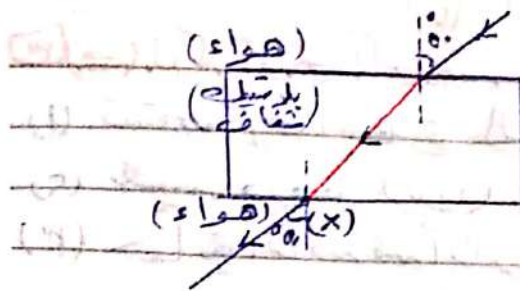 50°
(هواء)
(بلاستيك
شفاف)
(هواء)
50°
(X)